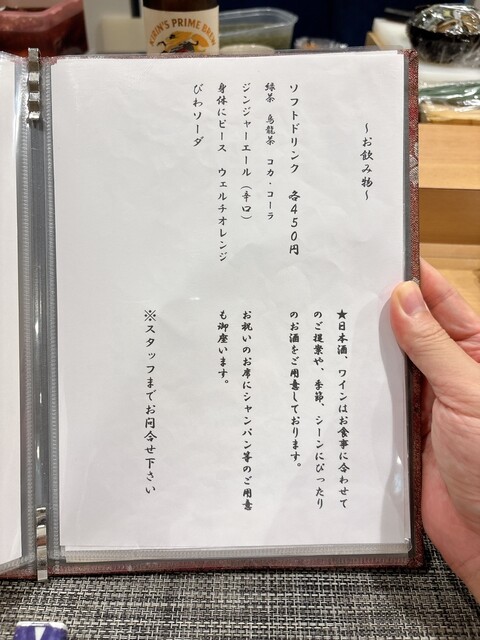 KIRIN'S PRIME BREW
～お飲み物～
ソフトドリンク 各450円
緑茶 烏龍茶 コカ・コーラ
ジンジャーエール（辛口）
身体にピース ウェルチオレンジ
びわソーダ
★日本酒、ワインはお食事に合わせて
のご提案や、季節、シーンにぴったり
のお酒をご用意しております。
お祝いのお席にシャンパン等のご用意
も御座います。
※スタッフまでお問合せ下さい